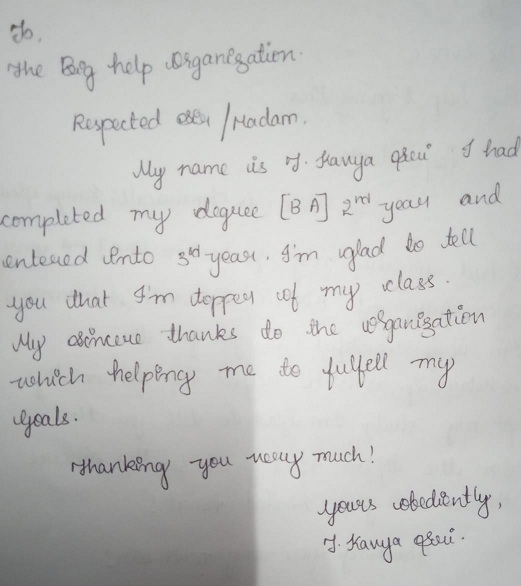 To,
The Big help Organization.
Respected Sir/Madam.
My name is J. Kavya Sri I had
completed my degree [BA] 2nd year and
entered into 3rd year. I'm glad to tell
you that I'm topper of my class.
My sincere thanks to the organization
which helping me to fulfell my
goals.
Thanking you very much!
yours obediently,
J. Kavya Sri.